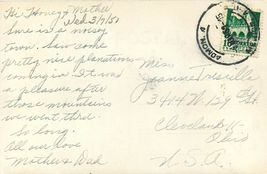 Hi Honey & Mother
Wed 3/7/51
Sure is a noisy
town. Saw some
pretty nice planation
coming in. It was
a pleasure after
those mountains
we went thro.
So long.
All our love
Mother & Dad
Miss
Joanne
3444 W.
Cleveland
Ohio
U.S.A.